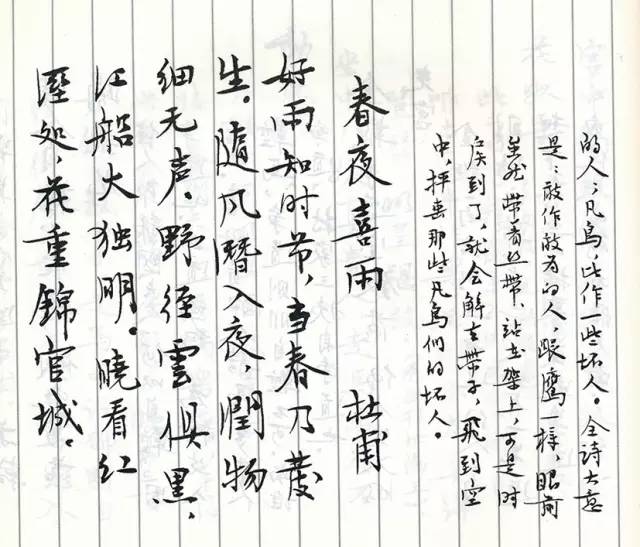 的人；凡鸟，比作一些坏人。全诗大意
是：敢作敢为的人，跟鹰一样，眼前
虽然带着丝带、站在架上，可是时
候到了，就会解去带子，飞到空
中，抨击那些凡鸟们的坏人。
春夜喜雨 杜甫
好雨知时节，当春乃發
生。随风潜入夜，潤物
细无声。野径雲俱黑，
江船火独明。曉看红
溼处，花重錦官城。